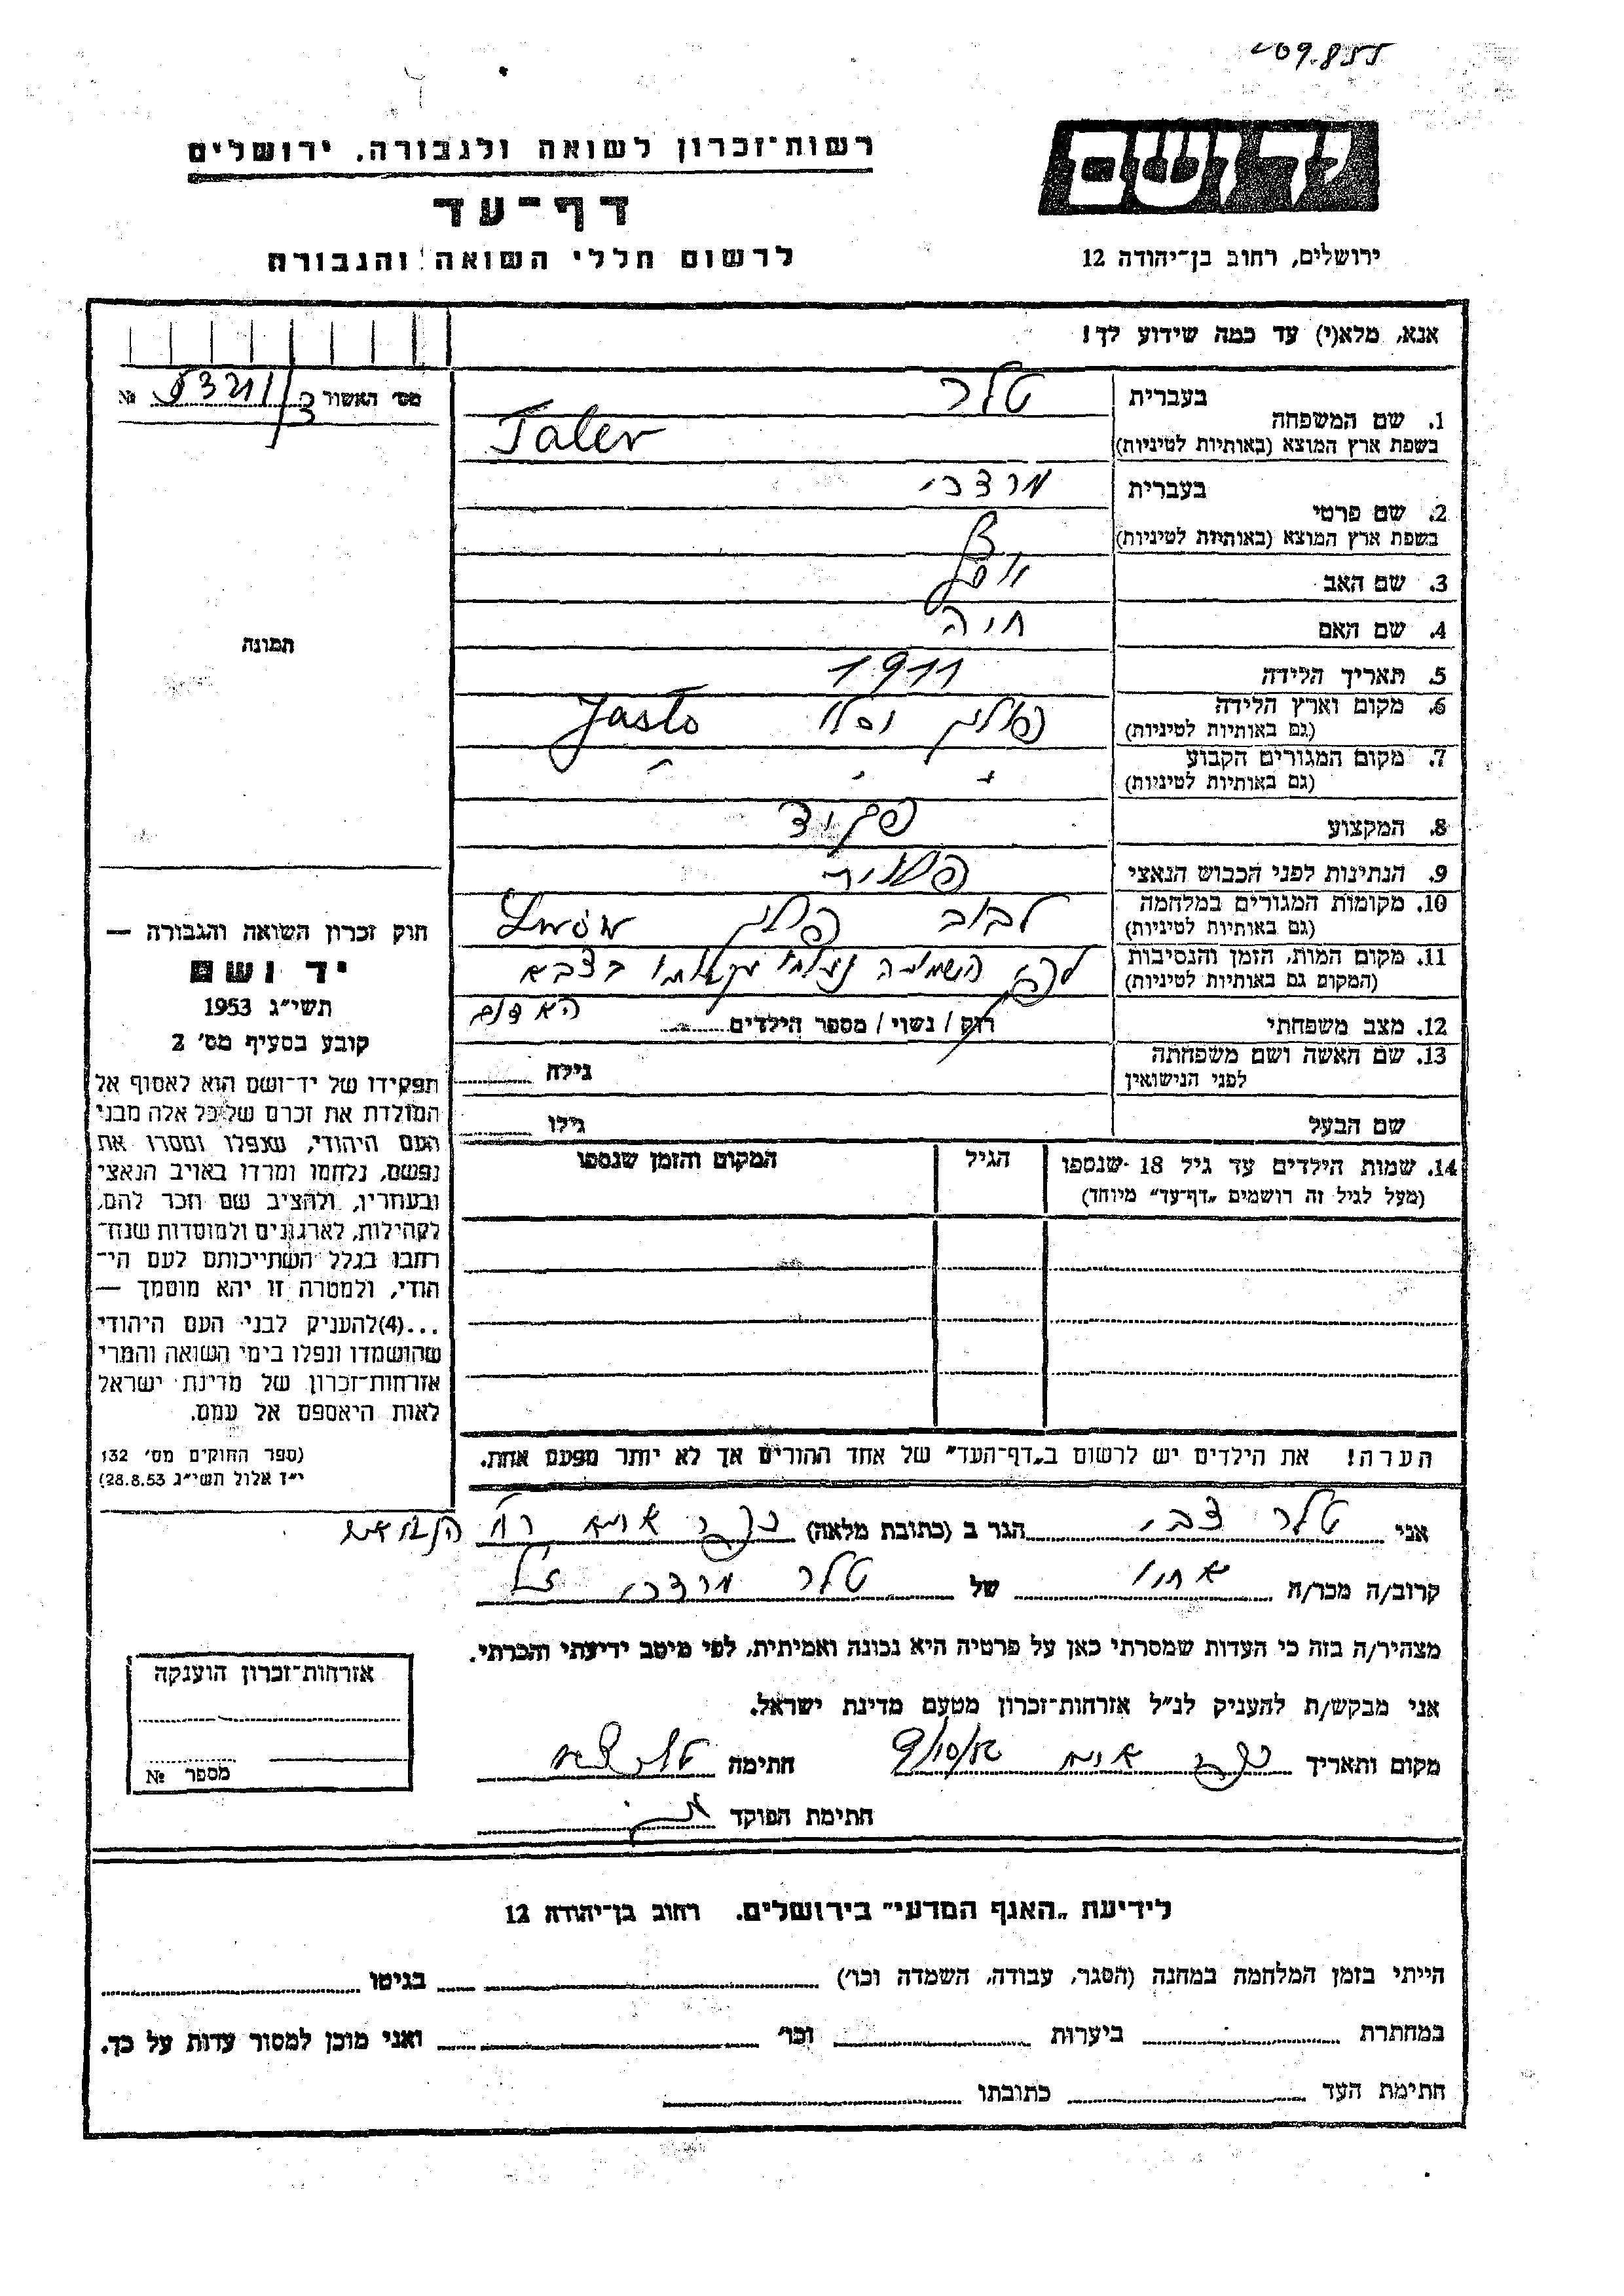 209.855
רשות־זכרון לשואה ולגבורה, ירושלים
דף־עד
לרשום חללי השואה והגבורה
יד ושם
ירושלים, רחוב בן־יהודה 12
אנא, מלא(י) עד כמה שידוע לך!
מס׳ האשור № 5321/3
תמונה
בעברית טלר
1. שם המשפחה
בשפת ארץ המוצא (באותיות לטיניות) Taler
בעברית מרדכי
2. שם פרטי
בשפת ארץ המוצא (באותיות לטיניות)
3. שם האב יוסף
4. שם האם חיה
5. תאריך הלידה 1911
6. מקום וארץ הלידה פולין יסלו Jasło
(גם באותיות לטיניות)
7. מקום המגורים הקבוע " " "
(גם באותיות לטיניות)
8. המקצוע פקיד
9. הנתינות לפני הכבוש הנאצי פולנית
10. מקומות המגורים במלחמה לבוב פולין Lwów
(גם באותיות לטיניות)
11. מקום המות, הזמן והנסיבות לפי השמועה
(המקום גם באותיות לטיניות) בצבא
האדום
12. מצב משפחתי רווק / נשוי / מספר הילדים
13. שם האשה ושם משפחתה גילה
לפני הנישואין
שם הבעל גילו
14. שמות הילדים עד גיל 18 שנספו הגיל המקום והזמן שנספו
(מעל לגיל זה רושמים „דף־עד״ מיוחד)
הערה! את הילדים יש לרשום ב„דף־העד״ של אחד ההורים אך לא יותר מפעם אחת.
חוק זכרון השואה והגבורה —
יד ושם
תשי״ג 1953
קובע בסעיף מס׳ 2
תפקידו של יד־ושם הוא לאסוף אל
המולדת את זכרם של כל אלה מבני
העם היהודי, שנפלו ומסרו את
נפשם, נלחמו ומרדו באויב הנאצי
ובעוזריו, ולהציב שם וזכר להם,
לקהילות, לארגונים ולמוסדות שנח־
רבו בגלל השתייכותם לעם הי־
הודי, ולמטרה זו יהא מוסמך —
...(4)להעניק לבני העם היהודי
שהושמדו ונפלו בימי השואה והמרי
אזרחות־זכרון של מדינת ישראל
לאות היאספם אל עמם.
(ספר החוקים מס׳ 132
י״ז אלול תשי״ג 28.8.53)
אני טלר צבי הגר ב (כתובת מלאה) כפר אתא רח׳
קרוב/ה מכר/ה אחיו של טלר מרדכי ז״ל
מצהיר/ה בזה כי העדות שמסרתי כאן על פרטיה היא נכונה ואמיתית, לפי מיטב ידיעתי והכרתי.
אני מבקש/ת להעניק לנ״ל אזרחות־זכרון מטעם מדינת ישראל.
מקום ותאריך כפר אתא חתימה טלר צבי
חתימת הפוקד
אזרחות־זכרון הוענקה
מספר №
לידיעת „האגף המדעי״ בירושלים. רחוב בן־יהודה 12
הייתי בזמן המלחמה במחנה (הסגר, עבודה, השמדה וכו׳) בגיטו
במחתרת ביערות וכו׳ ואני מוכן למסור עדות על כך.
חתימת העד כתובתו